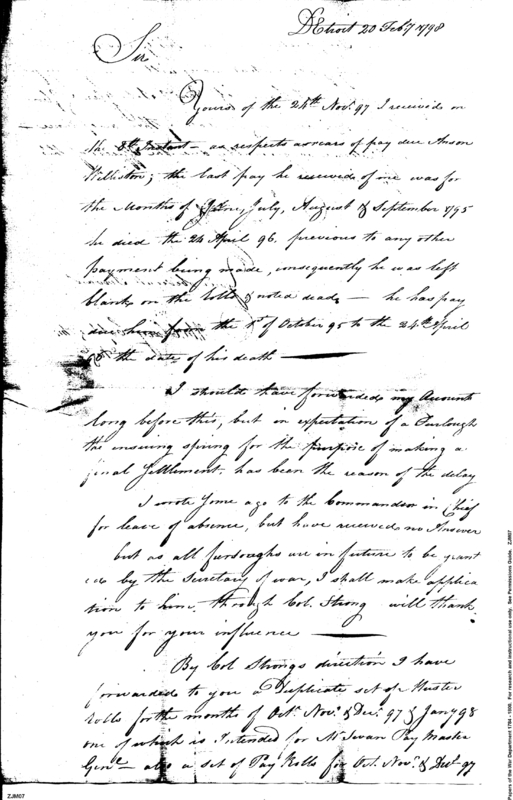 Detroit 20 Feby 1798
Sir
Yours of the 24th Novr 97 I received on
the 8th Instant - as respects arrears of pay due Anson
Williston; the last pay he received of me was for
the Months of June, July, August & September 1795
he died the 24 April 96. previous to any other
payment being made, consequently he was left
blank on the Rolls & noted dead, - he has pay
due him from the 1st of October 95 to the 24th April
96 the date of his death
I should have forwarded my Accounts
long before this, but in expectation of a Furlough
the ensuing spring for the purpose of making a
final Settlement. has been the reason of the delay
I wrote some ago to the Commander in Chief
for leave of absence, but have received no Answer
but as all furloughs are in future to be grant
ed by the Secretary of war, I shall make applica
tion to him, through Col. Strong will thank
you for your influence
By Col Strongs direction I have
forwarded to you a Duplicate set of Muster
Rolls for the months of Octr Novr & Decr 97 & Jany 98
one of which is Intended for Mr Swan Pay Master
Genl - also a set of Pay Rolls for Oct. Novr & Decr 97
ZJM07
Papers of the War Department 1784 - 1800. For research and instructional use only. See Permissions Guide. ZJM07